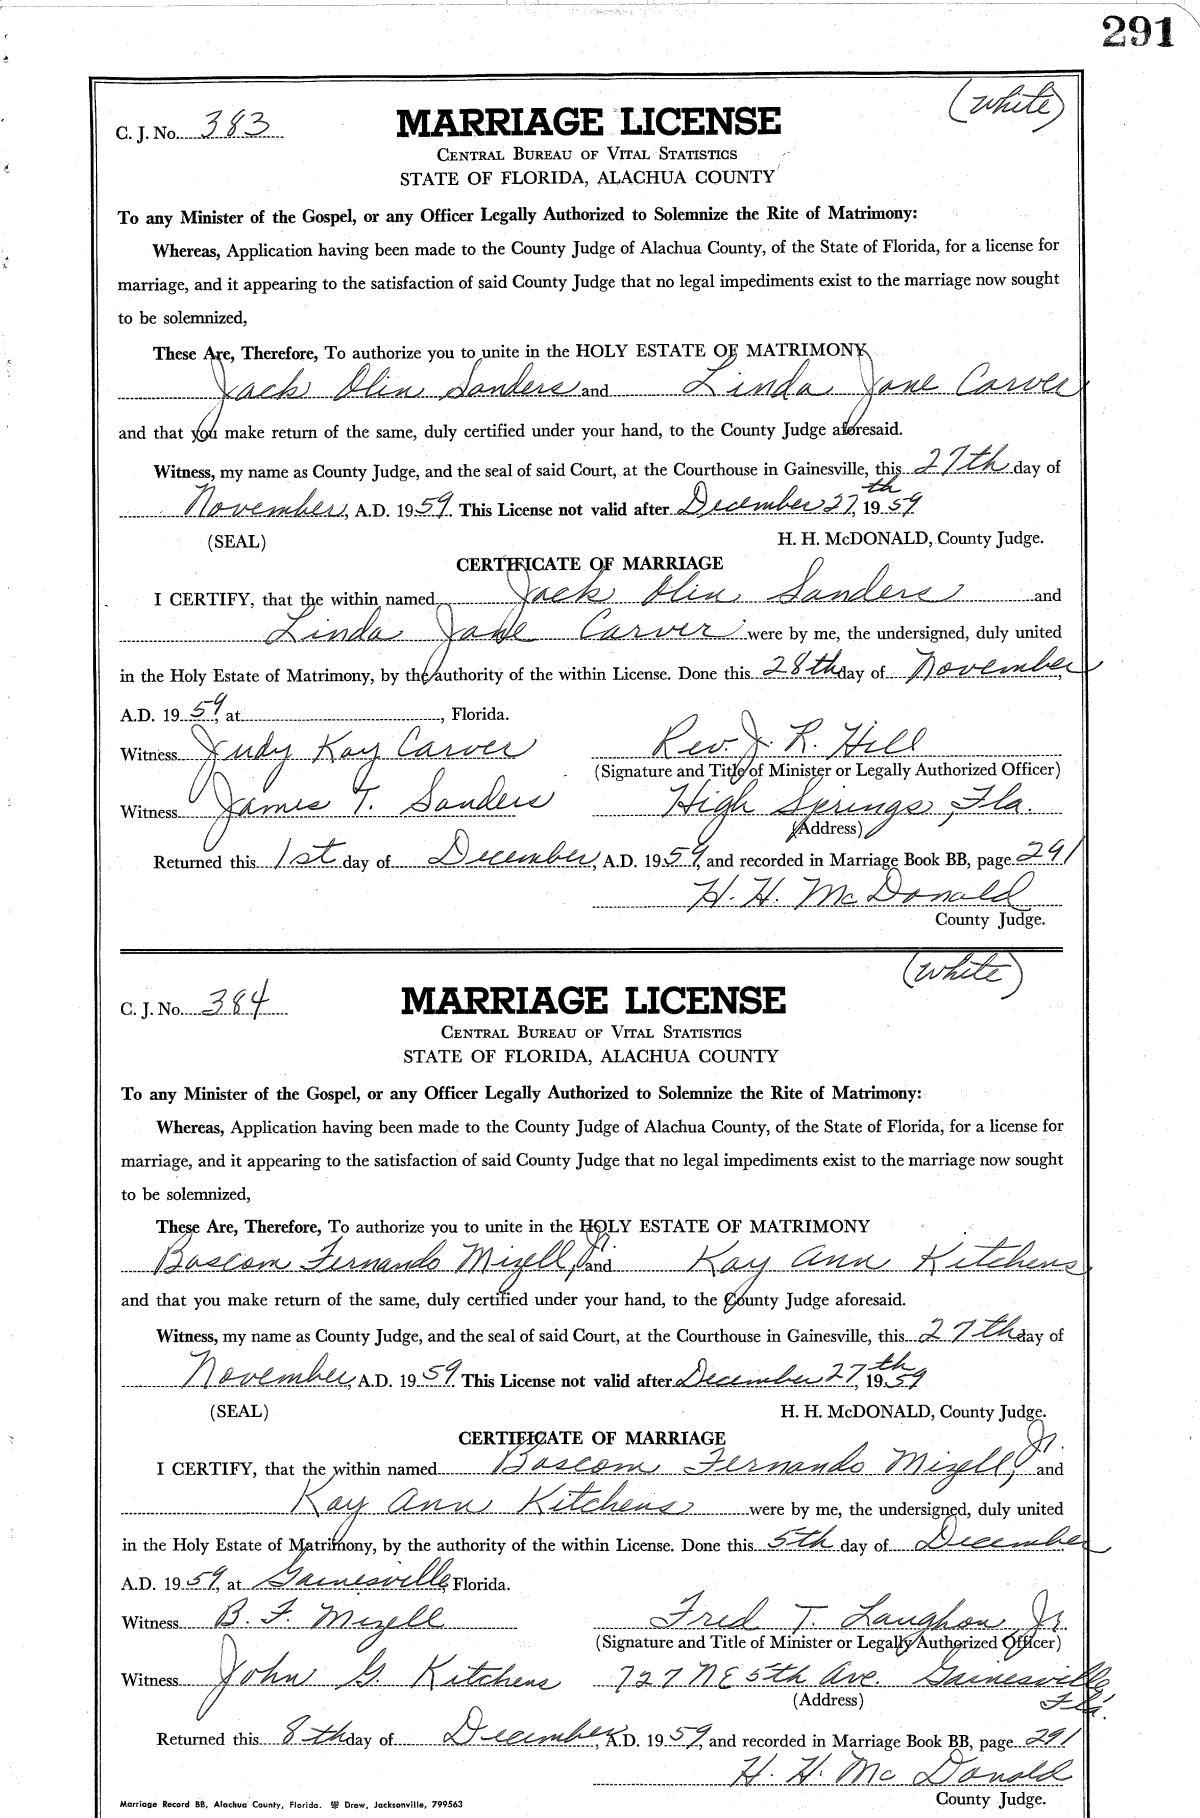 291
(White)
C. J. No. 383
MARRIAGE LICENSE
CENTRAL BUREAU OF VITAL STATISTICS
STATE OF FLORIDA, ALACHUA COUNTY
To any Minister of the Gospel, or any Officer Legally Authorized to Solemnize the Rite of Matrimony:
Whereas, Application having been made to the County Judge of Alachua County, of the State of Florida, for a license for
marriage, and it appearing to the satisfaction of said County Judge that no legal impediments exist to the marriage now sought
to be solemnized,
These Are, Therefore, To authorize you to unite in the HOLY ESTATE OF MATRIMONY
Jack Olin Sanders and Linda Jane Carver
and that you make return of the same, duly certified under your hand, to the County Judge aforesaid.
Witness, my name as County Judge, and the seal of said Court, at the Courthouse in Gainesville, this 27th day of
November, A.D. 1959. This License not valid after December 27th, 1959
(SEAL) H. H. McDONALD, County Judge.
CERTIFICATE OF MARRIAGE
I CERTIFY, that the within named Jack Olin Sanders and
Linda Jane Carver were by me, the undersigned, duly united
in the Holy Estate of Matrimony, by the authority of the within License. Done this 28th day of November,
A.D. 1959, at , Florida.
Witness Judy Kay Carver Rev. J. R. Hill
(Signature and Title of Minister or Legally Authorized Officer)
Witness James T. Sanders High Springs, Fla.
(Address)
Returned this 1st day of December, A.D. 1959, and recorded in Marriage Book BB, page 291
H. H. McDonald
County Judge.
(White)
C. J. No. 384
MARRIAGE LICENSE
CENTRAL BUREAU OF VITAL STATISTICS
STATE OF FLORIDA, ALACHUA COUNTY
To any Minister of the Gospel, or any Officer Legally Authorized to Solemnize the Rite of Matrimony:
Whereas, Application having been made to the County Judge of Alachua County, of the State of Florida, for a license for
marriage, and it appearing to the satisfaction of said County Judge that no legal impediments exist to the marriage now sought
to be solemnized,
These Are, Therefore, To authorize you to unite in the HOLY ESTATE OF MATRIMONY
Bascom Fernando Mizell, Jr. and Kay Ann Kitchens
and that you make return of the same, duly certified under your hand, to the County Judge aforesaid.
Witness, my name as County Judge, and the seal of said Court, at the Courthouse in Gainesville, this 27th day of
November, A.D. 1959. This License not valid after December 27th, 1959
(SEAL) H. H. McDONALD, County Judge.
CERTIFICATE OF MARRIAGE
I CERTIFY, that the within named Bascom Fernando Mizell, Jr. and
Kay Ann Kitchens were by me, the undersigned, duly united
in the Holy Estate of Matrimony, by the authority of the within License. Done this 5th day of December
A.D. 1959, at Gainesville, Florida.
Witness B. F. Mizell Fred T. Laughon, Jr.
(Signature and Title of Minister or Legally Authorized Officer)
Witness John G. Kitchens 727 NE 5th Ave. Gainesville, Fla.
(Address)
Returned this 8th day of December, A.D. 1959, and recorded in Marriage Book BB, page 291
H. H. McDonald
County Judge.
Marriage Record BB, Alachua County, Florida. Drew, Jacksonville, 799563